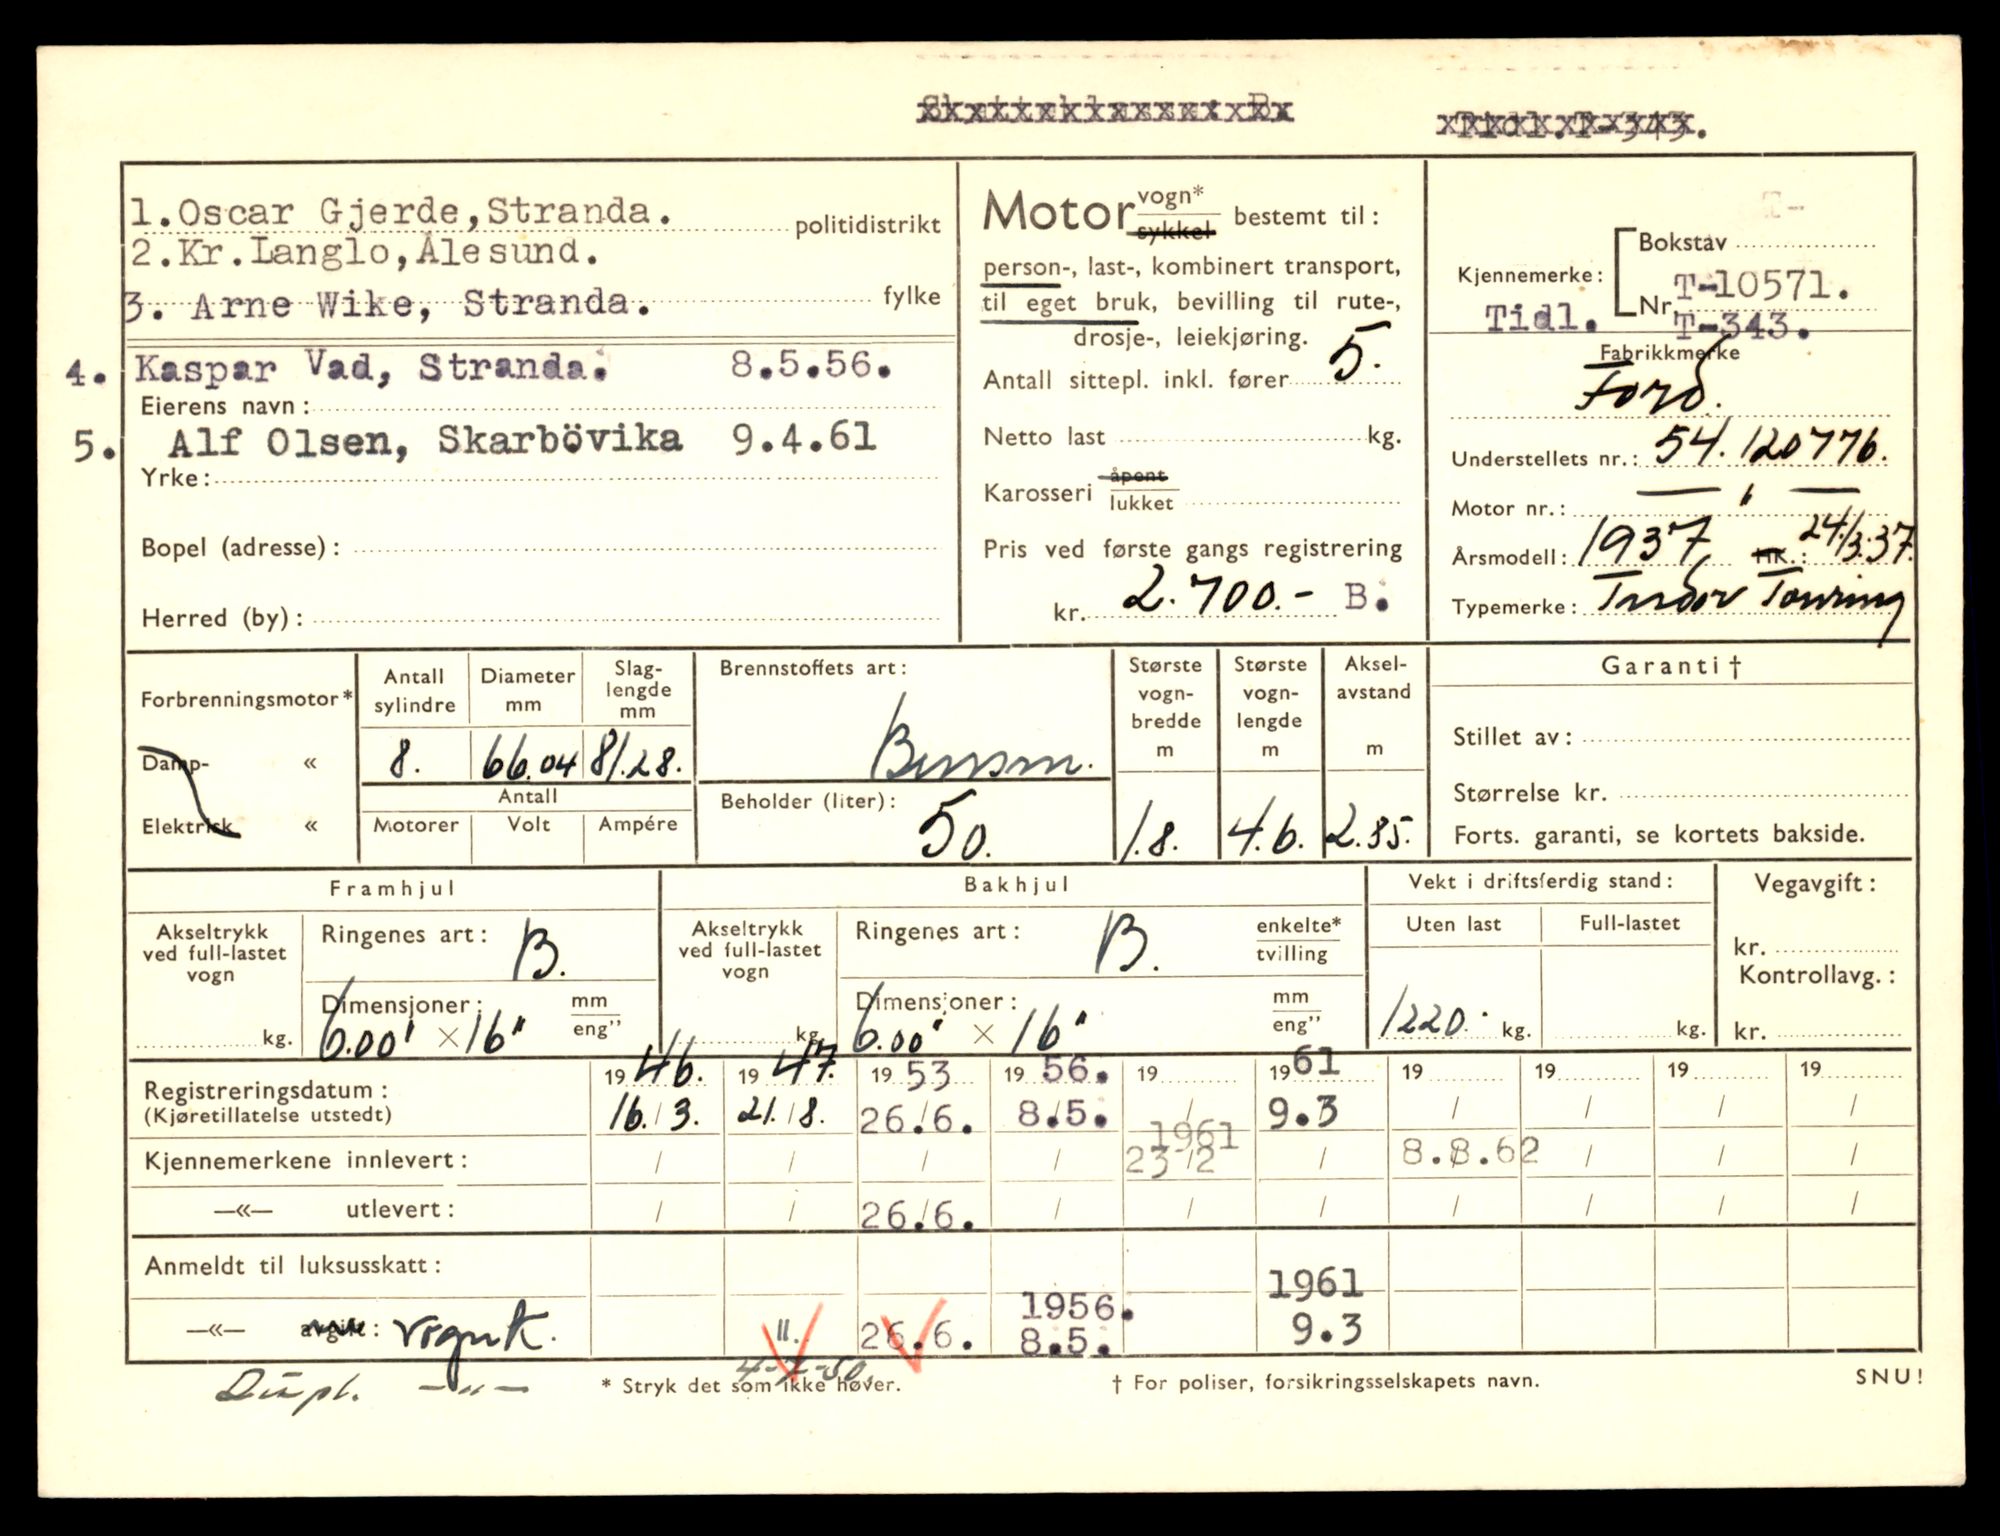 Skatteklasse: B.
Tidl.T-343.
1.Oscar Gjerde,Stranda.
politidistrikt
2.Kr.Langlo,Ålesund.
3. Arne Wike, Stranda.
fylke
4. Kaspar Vad, Stranda. 8.5.56.
Eierens navn:
5. Alf Olsen, Skarbövika 9.4.61
Yrke:
Bopel (adresse):
Herred (by):
Motor vogn* sykkel bestemt til:
person-, last-, kombinert transport,
til eget bruk, bevilling til rute-,
drosje-, leiekjøring.
Antall sittepl. inkl. fører 5.
Netto last kg.
Karosseri åpent lukket
Pris ved første gangs registrering
kr. 2.700.- B.
T-
Kjennemerke: Bokstav
Nr. T-10571.
Tidl. T-343.
Fabrikkmerke
Ford.
Understellets nr.: 54.120776.
Motor nr.: — " —
Årsmodell: 1937 HK.: 24/3.37.
Typemerke: Tudor Touring
Forbrenningsmotor*
Damp- «
Elektrisk «
Antall sylindre
8.
Diameter mm
66.04
Slag-lengde mm
81.28.
Antall
Motorer Volt Ampére
Brennstoffets art:
Bensin.
Beholder (liter):
50.
Største vogn-bredde m
1.8.
Største vogn-lengde m
4.6.
Aksel-avstand m
2.85.
Garanti †
Stillet av:
Størrelse kr.
Forts. garanti, se kortets bakside.
Framhjul
Akseltrykk ved full-lastet vogn
kg.
Ringenes art: B.
Dimensjoner: mm eng"
6.00" × 16"
Bakhjul
Akseltrykk ved full-lastet vogn
kg.
Ringenes art: B. enkelte* tvilling
Dimensjoner: mm eng"
6.00" × 16"
Vekt i driftsferdig stand:
Uten last Full-lastet
1220. kg. kg.
Vegavgift:
kr.
Kontrollavg.:
kr.
Registreringsdatum: 1946. 1947. 1953 1956. 19 1961 19 19 19 19
(Kjøretillatelse utstedt) 16./3. 21./8. 26./6. 8./5. / 9.3 / / / /
1961
Kjennemerkene innlevert: / / / / 23/2 / 8.8.62 / / /
—«— utlevert: / / 26./6. / / / / / / /
Anmeldt til luksusskatt:
1956. 1961
—«— avgift: vognk. ". 26.6. 8.5. 9.3
Dupl. —"— 4-7-50.
* Stryk det som ikke høver.
† For poliser, forsikringsselskapets navn.
SNU!